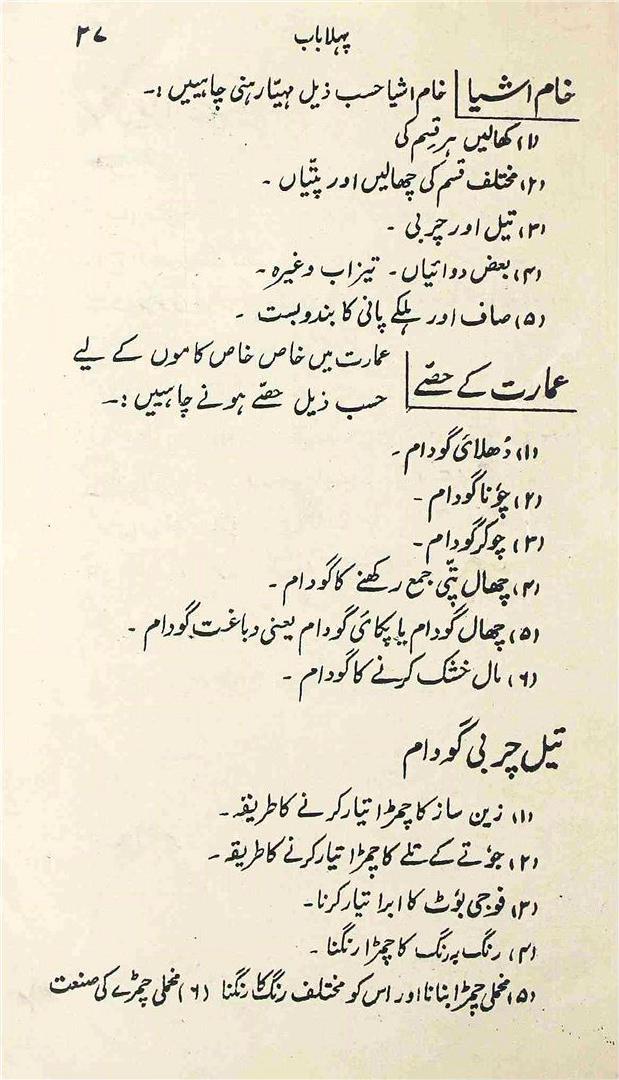 پہلا باب ۲۷
خام اشیا خام اشیا حسب ذیل مہیّا رہنی چاہییں :۔
(۱) کھالیں ہر قِسم کی
(۲) مختلف قسم کی چھالیں اور پتّیاں ۔
(۳) تیل اور چربی ۔
(۴) بعض دوائیاں۔ تیزاب وغیرہ ۔
(۵) صاف اور ہلکے پانی کا بندوبست ۔
عمارت کے حصّے عمارت میں خاص خاص کاموں کے لیے
حسب ذیل حصّے ہونے چاہییں :۔
(۱) دُھلائی گودام ۔
(۲) چُونا گودام ۔
(۳) چوکر گودام ۔
(۴) چھال پتّی جمع رکھنے کا گودام ۔
(۵) چھال گودام یا پکائی گودام یعنی دباغت گودام ۔
(۶) مال خشک کرنے کا گودام ۔
تیل چربی گودام
(۱) زین ساز کا چمڑا تیار کرنے کا طریقہ ۔
(۲) جوُتے کے تلے کا چمڑا تیار کرنے کا طریقہ ۔
(۳) فوجی بوُٹ کا ابرا تیار کرنا۔
(۴) رنگ بہ رنگ کا چمڑا رنگنا ۔
(۵) مخملی چمڑا بنانا اور اس کو مختلف رنگ کا رنگنا (۶) مخملی چمڑے کی صنعت